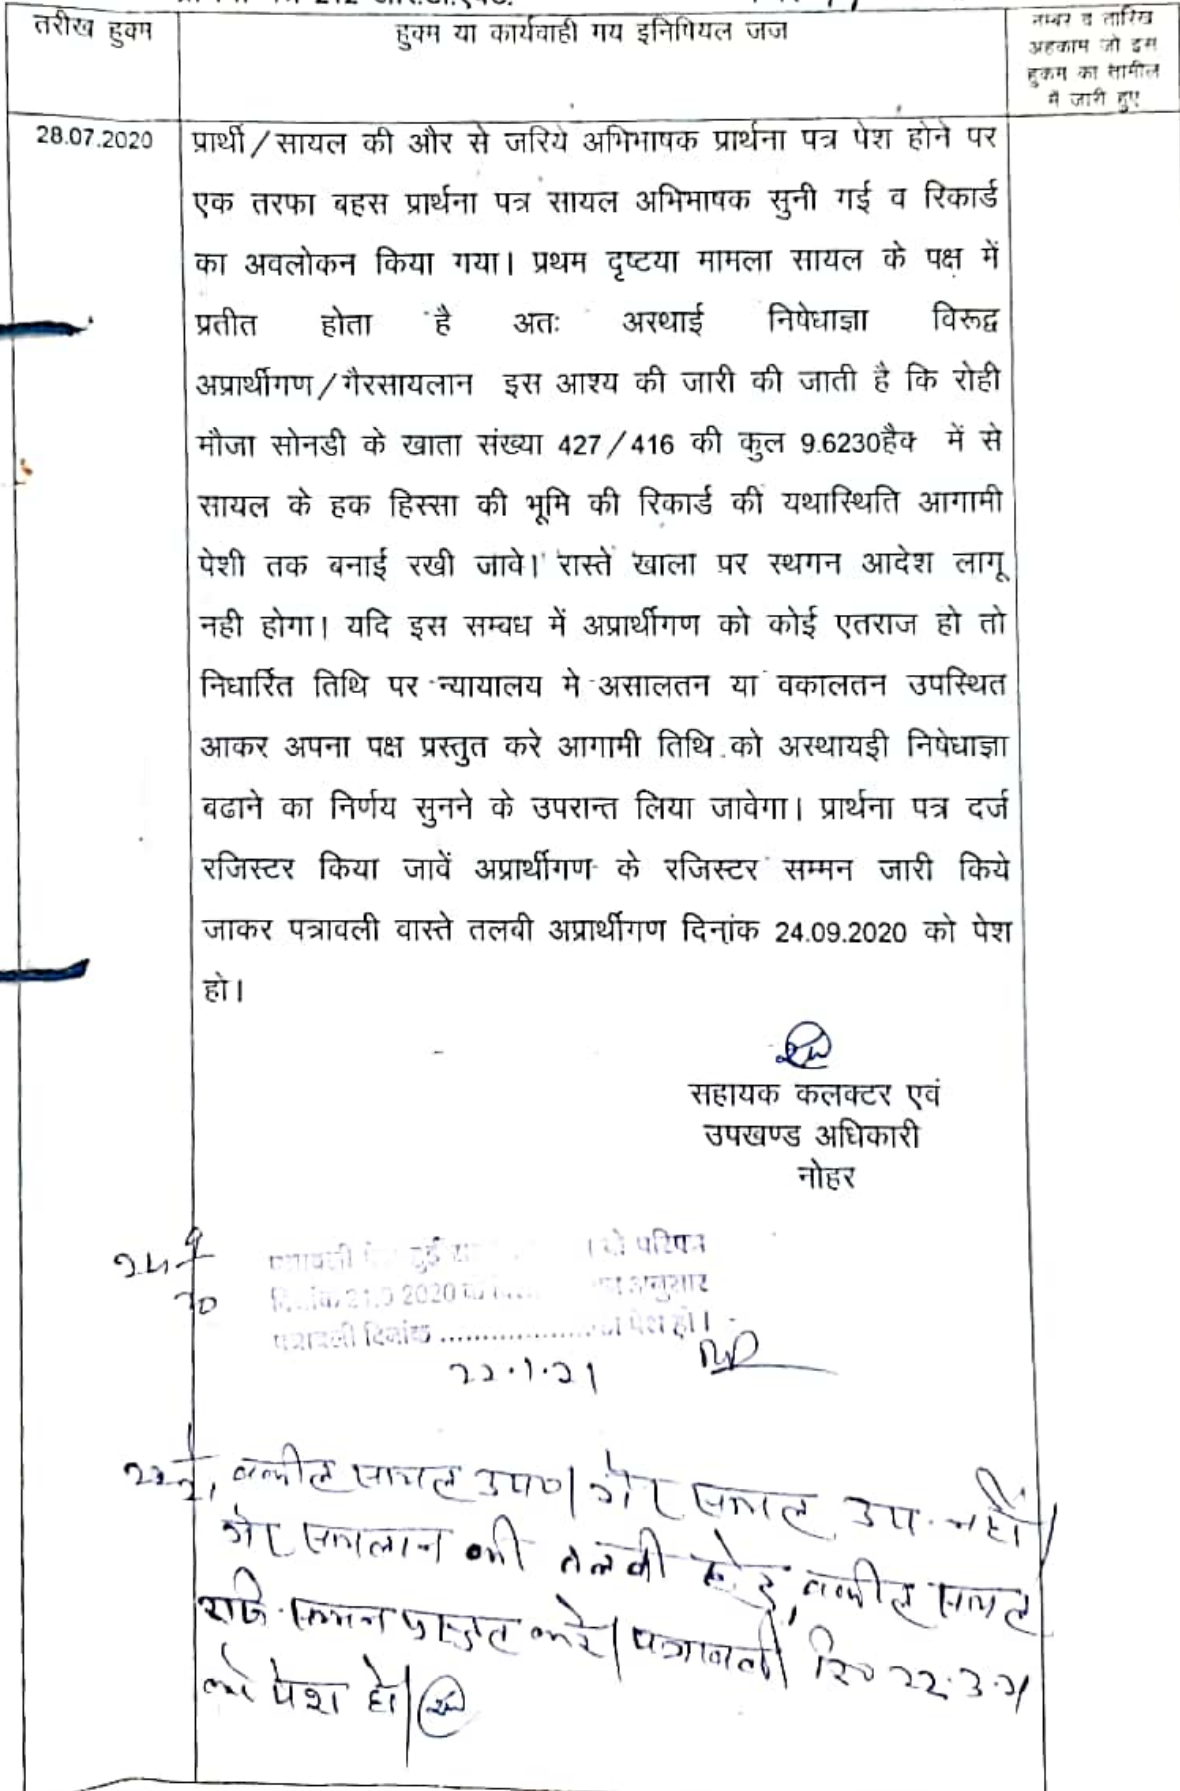 तरीख हुक्म
हुक्म या कार्यवाही गय इनिपियल जज
नम्बर व तारिख
अहकाम जो इस
हुकम का तामील
में जारी हुए
28.07.2020
प्रार्थी/सायल की और से जरिये अभिभाषक प्रार्थना पत्र पेश होने पर
एक तरफा बहस प्रार्थना पत्र सायल अभिभाषक सुनी गई व रिकार्ड
का अवलोकन किया गया। प्रथम दृष्टया मामला सायल के पक्ष में
प्रतीत होता है अतः अस्थाई निषेधाज्ञा विरूद्व
अप्रार्थीगण/गैरसायलान इस आश्य की जारी की जाती है कि रोही
मौजा सोनडी के खाता संख्या 427/416 की कुल 9.6230हैक में से
सायल के हक हिस्सा की भूमि की रिकार्ड की यथास्थिति आगामी
पेशी तक बनाई रखी जावे। रास्ते खाला पर स्थगन आदेश लागू
नही होगा। यदि इस सम्वध में अप्रार्थीगण को कोई एतराज हो तो
निधारित तिथि पर न्यायालय मे असालतन या वकालतन उपस्थित
आकर अपना पक्ष प्रस्तुत करे आगामी तिथि को अस्थायइी निषेधाज्ञा
बढाने का निर्णय सुनने के उपरान्त लिया जावेगा। प्रार्थना पत्र दर्ज
रजिस्टर किया जावें अप्रार्थीगण के रजिस्टर सम्मन जारी किये
जाकर पत्रावली वास्ते तलवी अप्रार्थीगण दिनांक 24.09.2020 को पेश
हो।
सहायक कलक्टर एवं
उपखण्ड अधिकारी
नोहर
24 9
20
पत्रावली पेश हुई परिपत्र
दिनांक 21.9.2020 के अनुसार
पत्रावली दिनांक .................... को पेश हो।
22.1.21
22 1
21
वकील सायल उप०। गैर सायल उप. नहीं।
गैर सायलान की तलबी हेतु वकील सायल
रजि. सम्मन प्रस्तुत करे। पत्रावली दि० 22.3.21
को पेश हो।